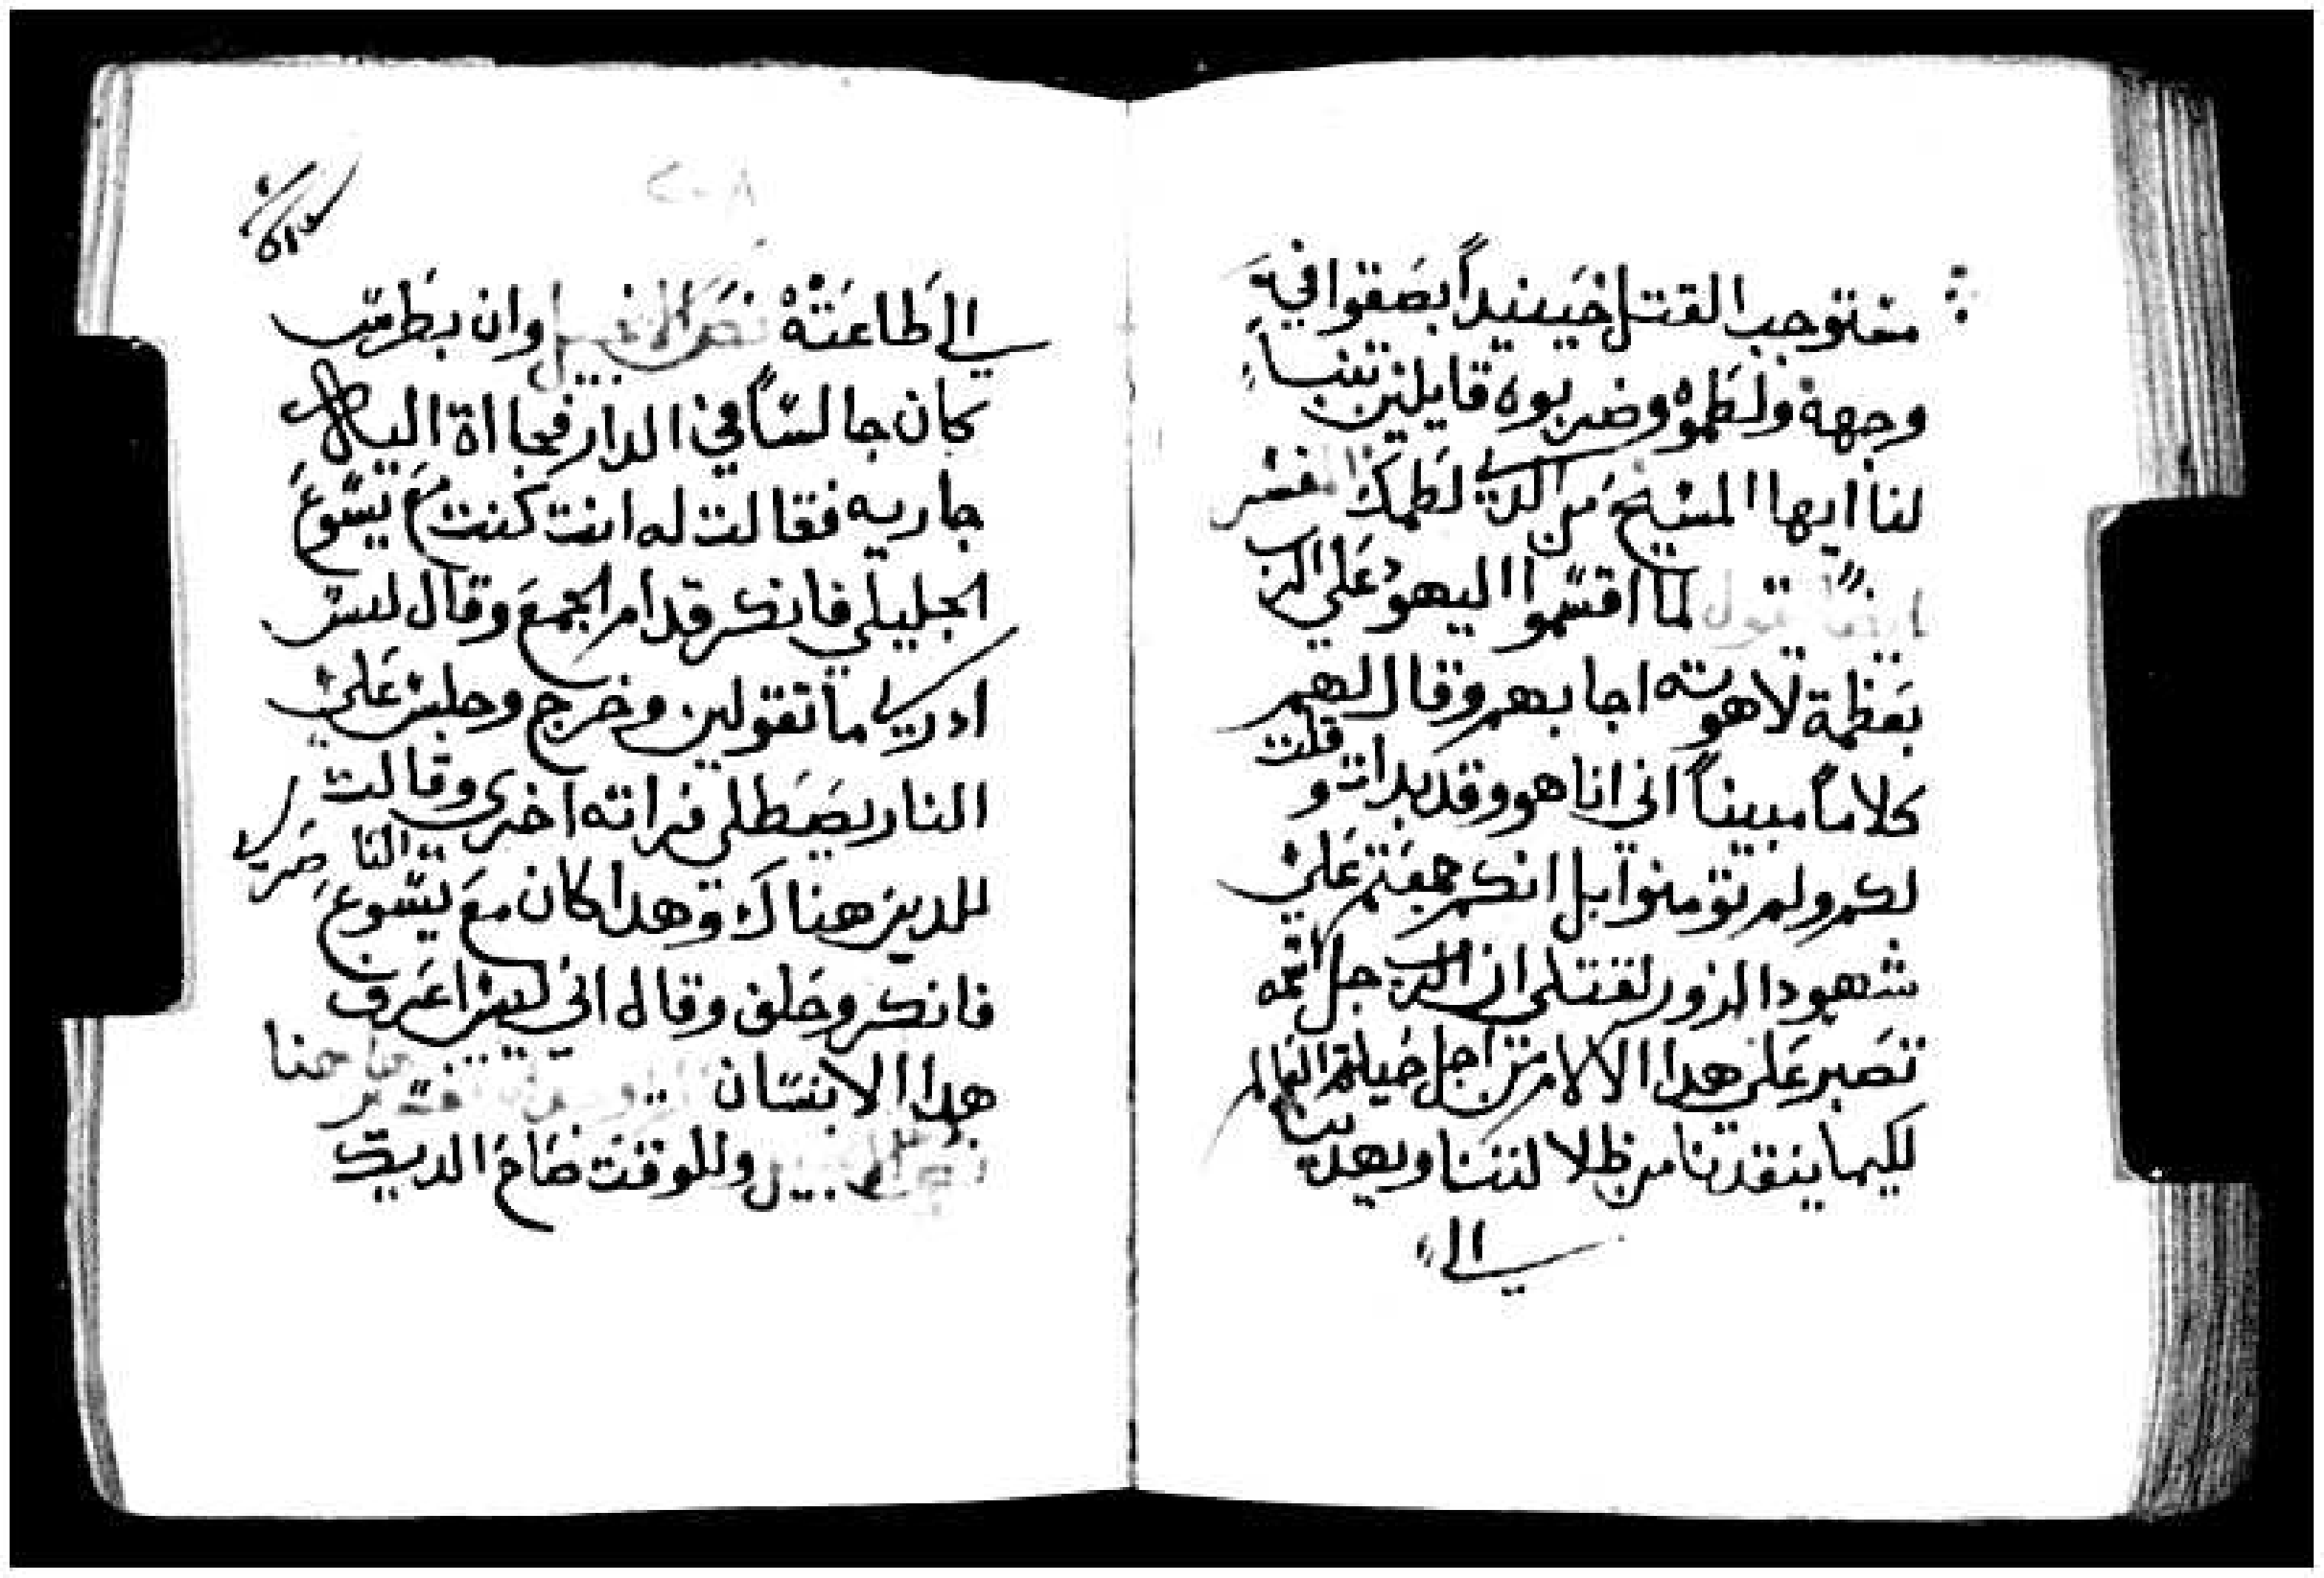 مستوجب القتل حينيداً بصقوا في
وجهه ولطموه وضربوه قايلين تنبا
لنا ايها المسيح من الدي لطمك المفسر
ايضاً يقول لما اقسموا اليهود على الرب
بعظمة لاهوته اجابهم وقال لهم
كلاماً مبيناً اني انا هو وقد بدات وقلت
لكم ولم تومنوا بل انكم جمعتم علي
شهود الزور لقتلي ان الرب جل اسمه
تصبر على هدا الالام من اجل حيلة العالم
لكيما ينقدنا من ظلالتنا ويهدينا
الي
٢٠٨
الي طاعته نص الانجيل وان بطرس
كان جالساً في الدار فجااة اليه
جاريه فقالت له انت كنت مع يسوع
الجليلي فانكر قدام الجمع وقال لست
ادري ما تقولين وخرج وجلس على
النار يصطلي فراته اخرى وقالت
للدين هناك وهدا كان مع يسوع الناصري
فانكر وحلف وقال اني لست اعرف
هدا الانسان
وللوقت صاح الديك